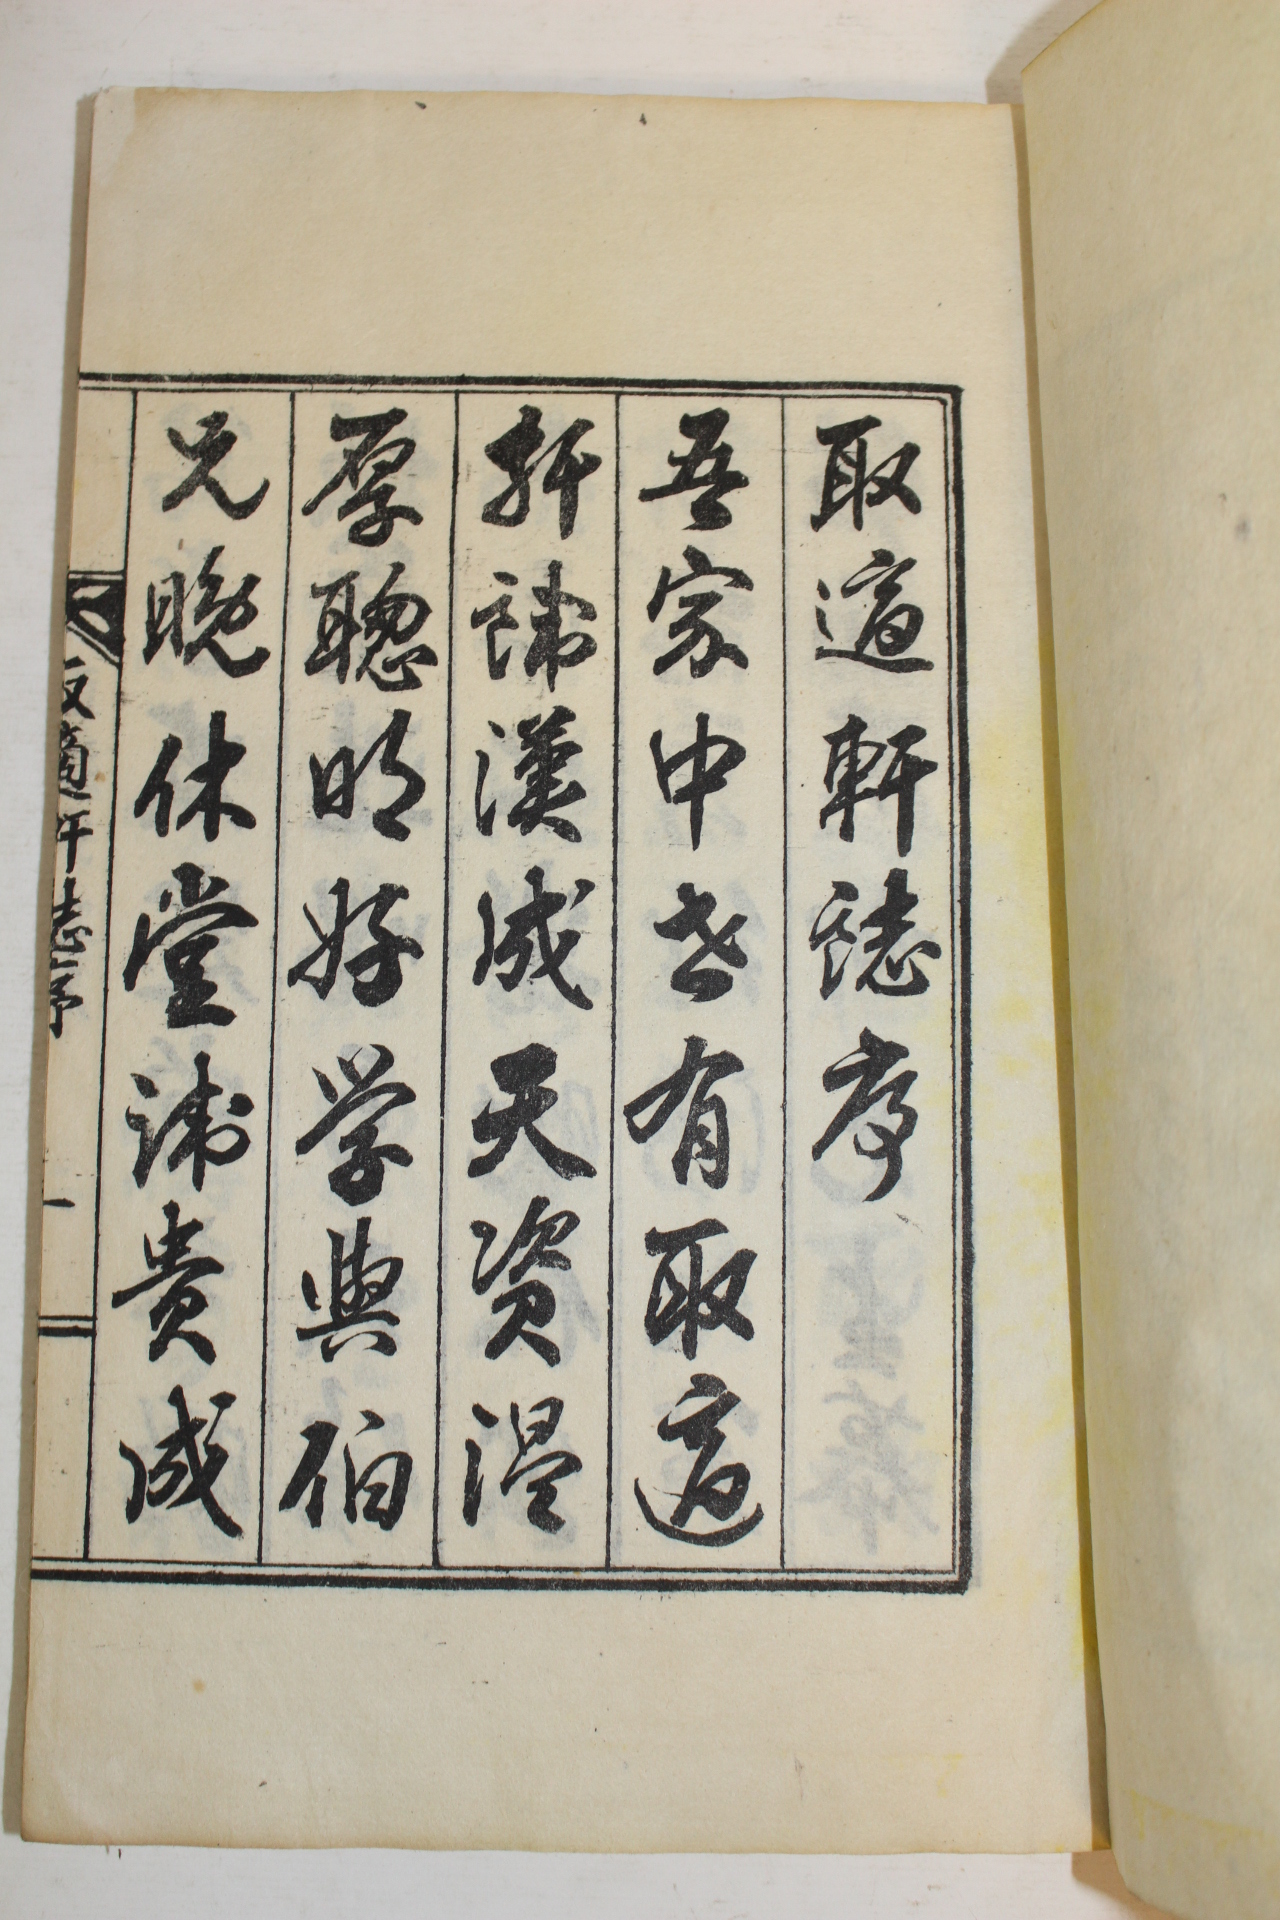 取適軒誌序
吾家中世有取適
軒諱漢成天資温
厚聰明好学與伯
兄晩休堂諱貴成
取適軒誌序 一